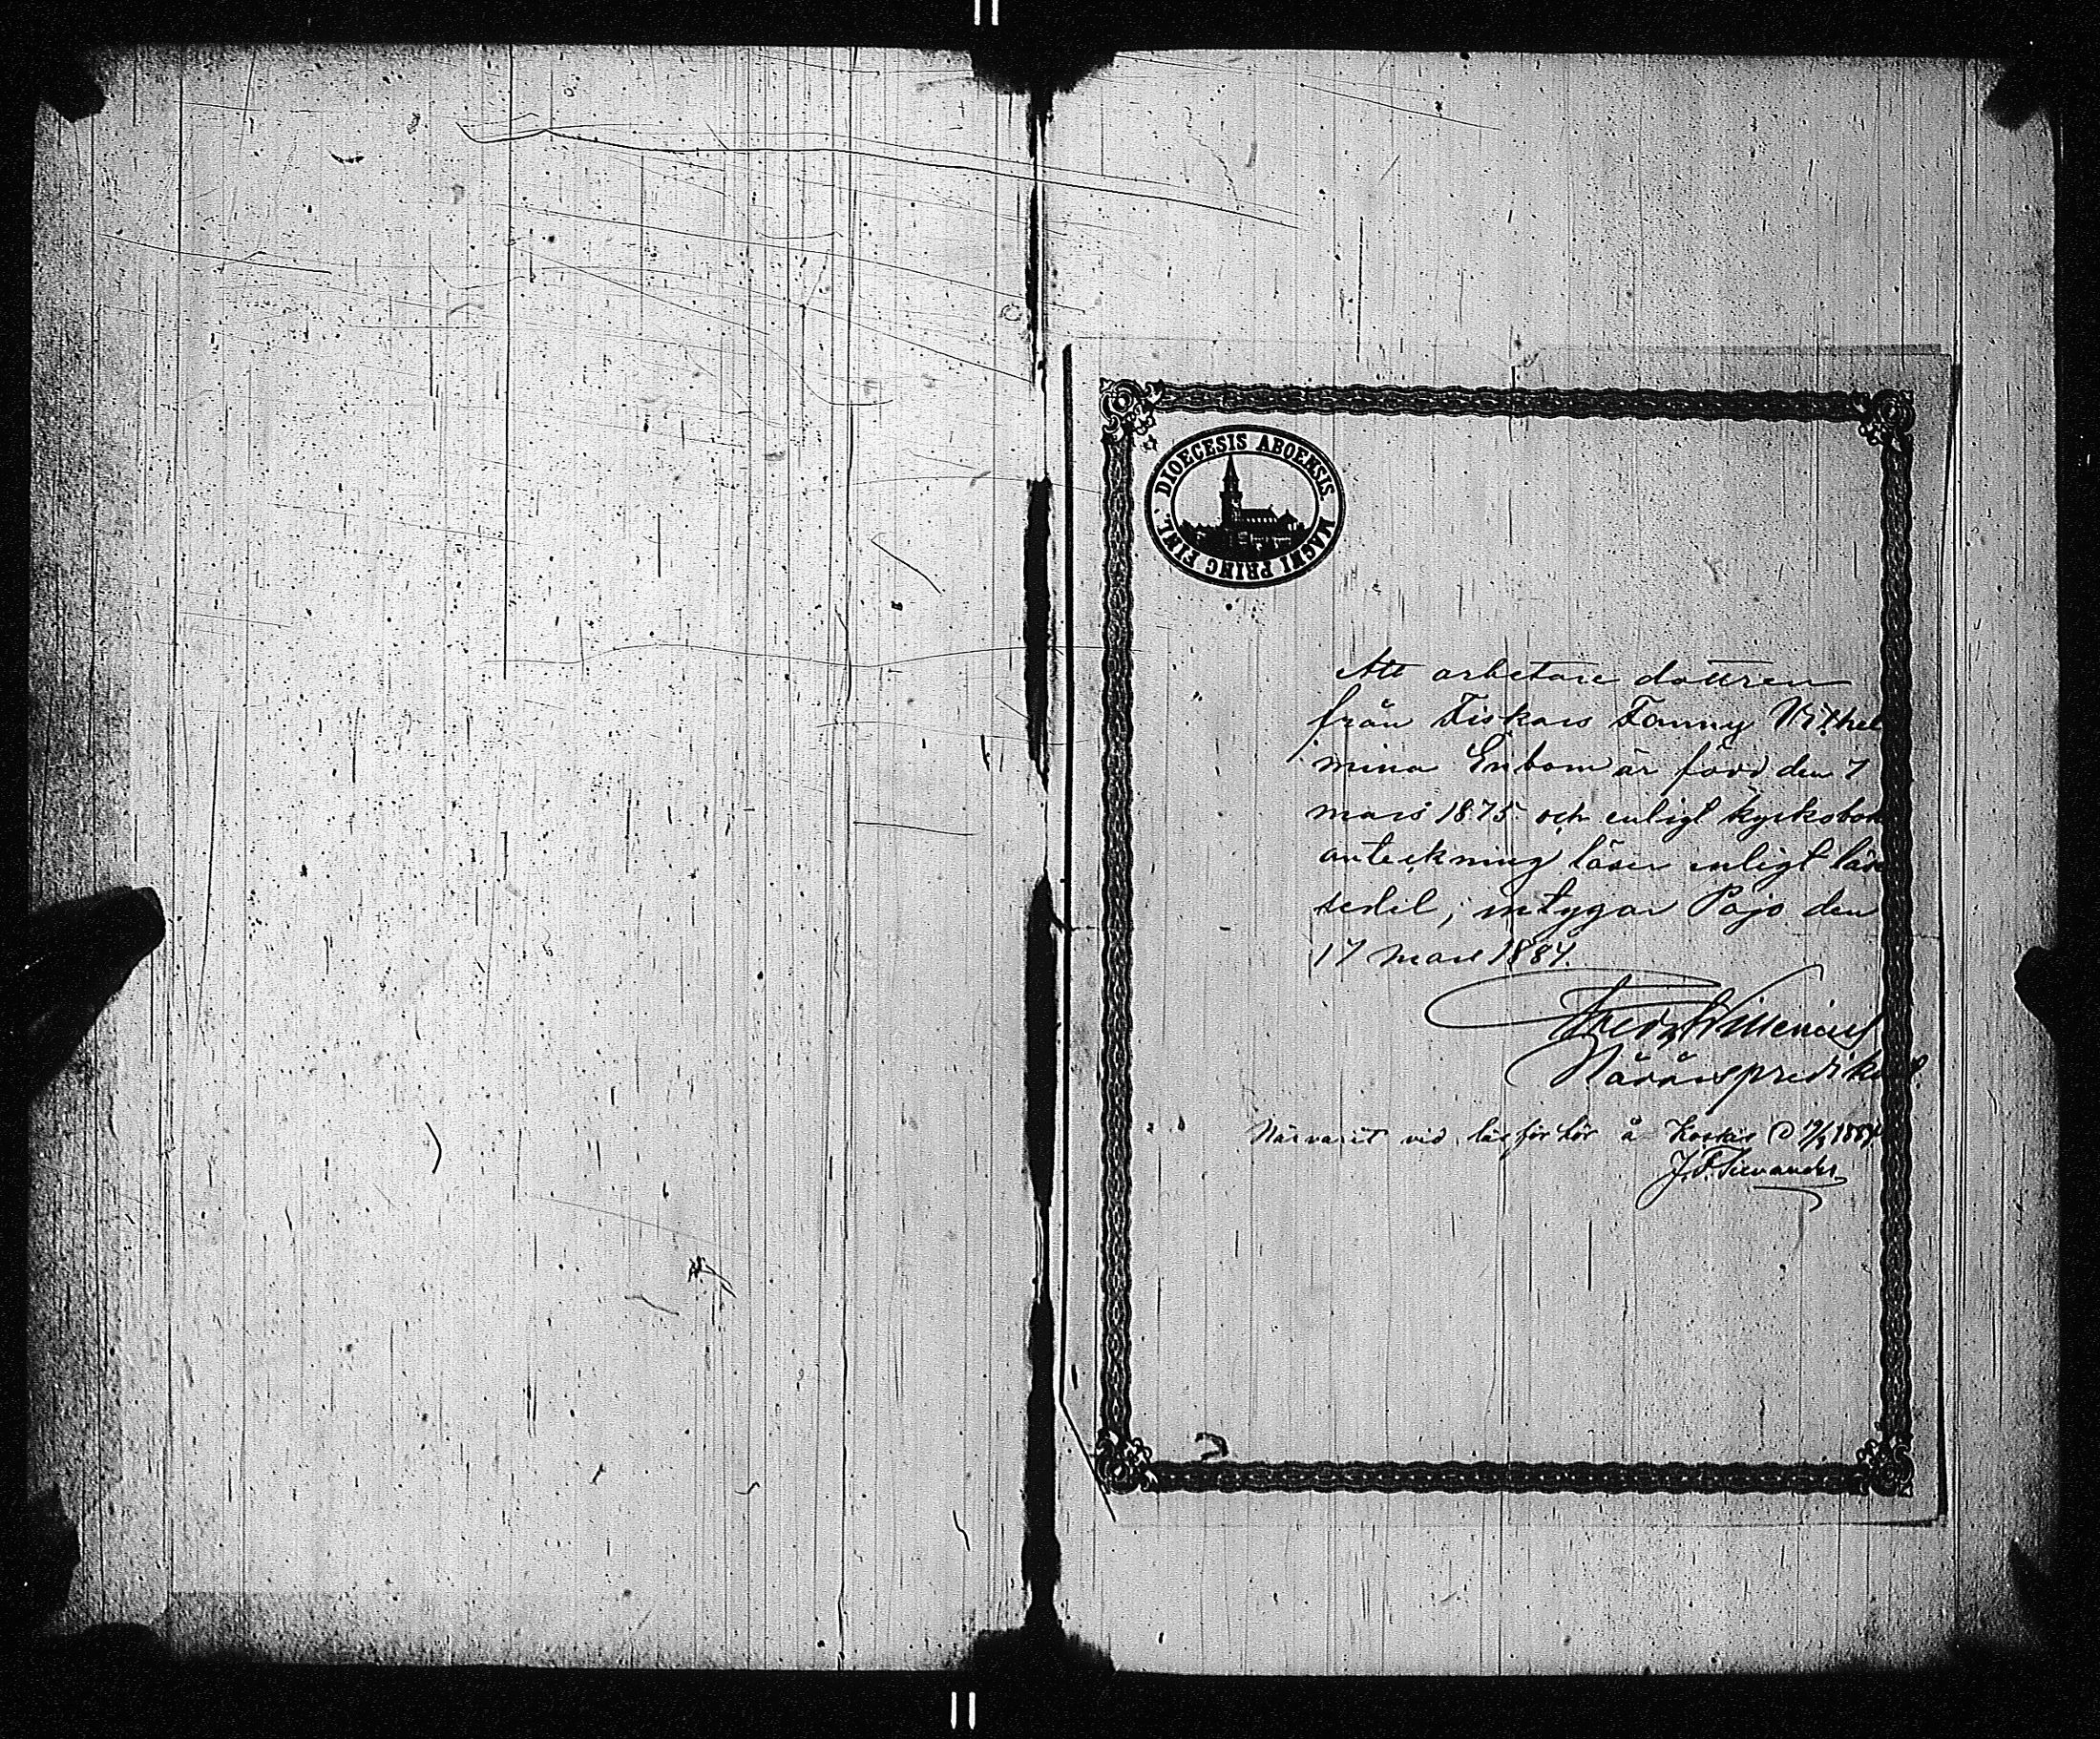 DIOECESIS ABOENSIS. MAGNI PRINC FINL.
Att arbetare dottren
från Fiskars Fanny Vilhel
mina Enbom är född den 7
mars 1875 och enligt kyrkobok
anteckning läser enligt läse
sedel, intygar Pojo den
17 mars 1884.
Nådårspredikant.
Närvarit vid läsförhör å Koskis D 19/3 1884